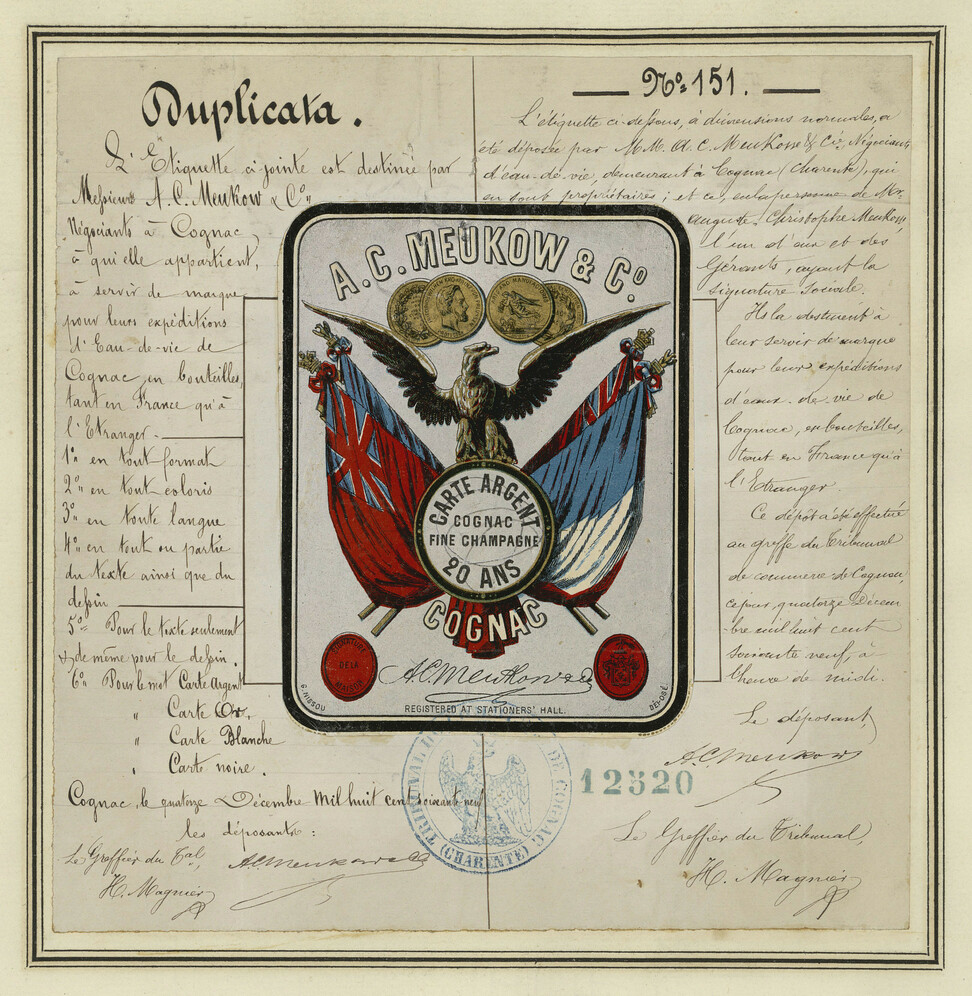 Duplicata.
L'Etiquette ci-jointe est destinée par
Messieurs A. C. Meukow & Co
Négociants à Cognac,
à qui elle appartient,
à servir de marque
pour leurs expéditions
d'Eau-de-vie de
Cognac, en bouteilles,
tant en France qu'à
l'Etranger.
1o en tout format
2o en tout coloris
3o en toute langue
4o en tout ou partie
du texte ainsi que du
dessin
5o Pour le texte seulement
& de même pour le dessin.
6o Pour le mot Carte Argent
" Carte Or.
" Carte Blanche
" Carte noire.
Cognac, le quatorze Décembre Mil huit cent soixante neuf
les déposants:
Le Greffier du Tal
A.C. Meukow & Co
H. Magnier
No 151.
L'étiquette ci-dessous, à dimensions normales, a
été déposée par M.M. A. C. Meukow & Cie, Négociants
d'eau-de-vie, demeurant à Cognac (Charente), qui
en sont propriétaires; et ce, en la personne de Mr.
Auguste Christophe Meukow,
l'un d'eux et des
Gérants, ayant la
signature sociale.
Ils la destinent à
leur servir de marque
pour leurs expéditions
d'eaux-de-vie de
Cognac, en bouteilles,
tant en France qu'à
l'Etranger.
Ce dépôt a été effectué
au greffe du Tribunal
de commerce de Cognac,
ce jour, quatorze Décem
bre mil huit cent
soixante neuf, à
l'heure de midi.
Le déposant,
A.C. Meukow
12520
Le Greffier du Tribunal,
H. Magnier
A. C. MEUKOW & Co
CARTE ARGENT
COGNAC
FINE CHAMPAGNE
20 ANS
COGNAC
DE LA
MAISON
A.C. Meukow & Co
G. NISSOU
REGISTERED AT STATIONERS' HALL.
DÉPOSÉ
TRIBUNAL DE COGNAC
(CHARENTE)